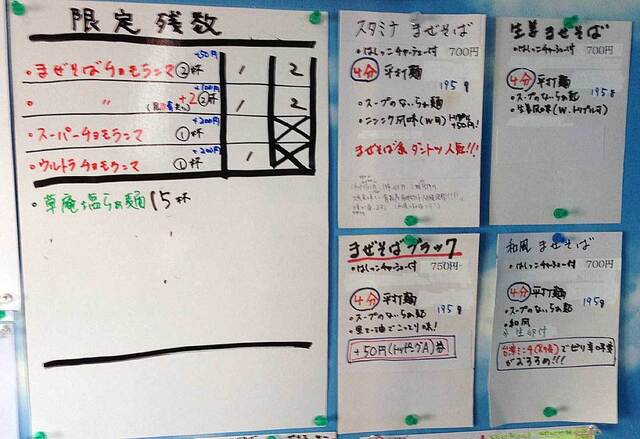 限定残数
+50円
・まぜそばチョモランマ ②杯 1 2
+100円
・ 〃 +2 ②杯 1 2
+200円
・スーパーチョモランマ ①杯
+200円
・ウルトラチョモランマ ①杯 1
・草庵塩らぁ麺 15杯
スタミナ まぜそば
・はしっこチャーシュー付 700円
4分 平打麺
195g
・スープのないらぁ麺
・ニンニク風味(W可)
+50円!
まぜそば系ダントツ人気!!!
生姜 まぜそば
・はしっこチャーシュー付 700円
4分 平打麺
195g
・スープのないらぁ麺
・生姜風味(W、トリプル可)
まぜそばブラック
・はしっこチャーシュー付
750円
4分 平打麺
195g
・スープのないらぁ麺
・黒マー油でこってり味!
+50円(トッピングA)券
和風 まぜそば
・はしっこチャーシュー付 700円
4分 平打麺
195g
・スープのないらぁ麺
・和風
台湾ミンチ
でピリ辛
がおすすめ!!!